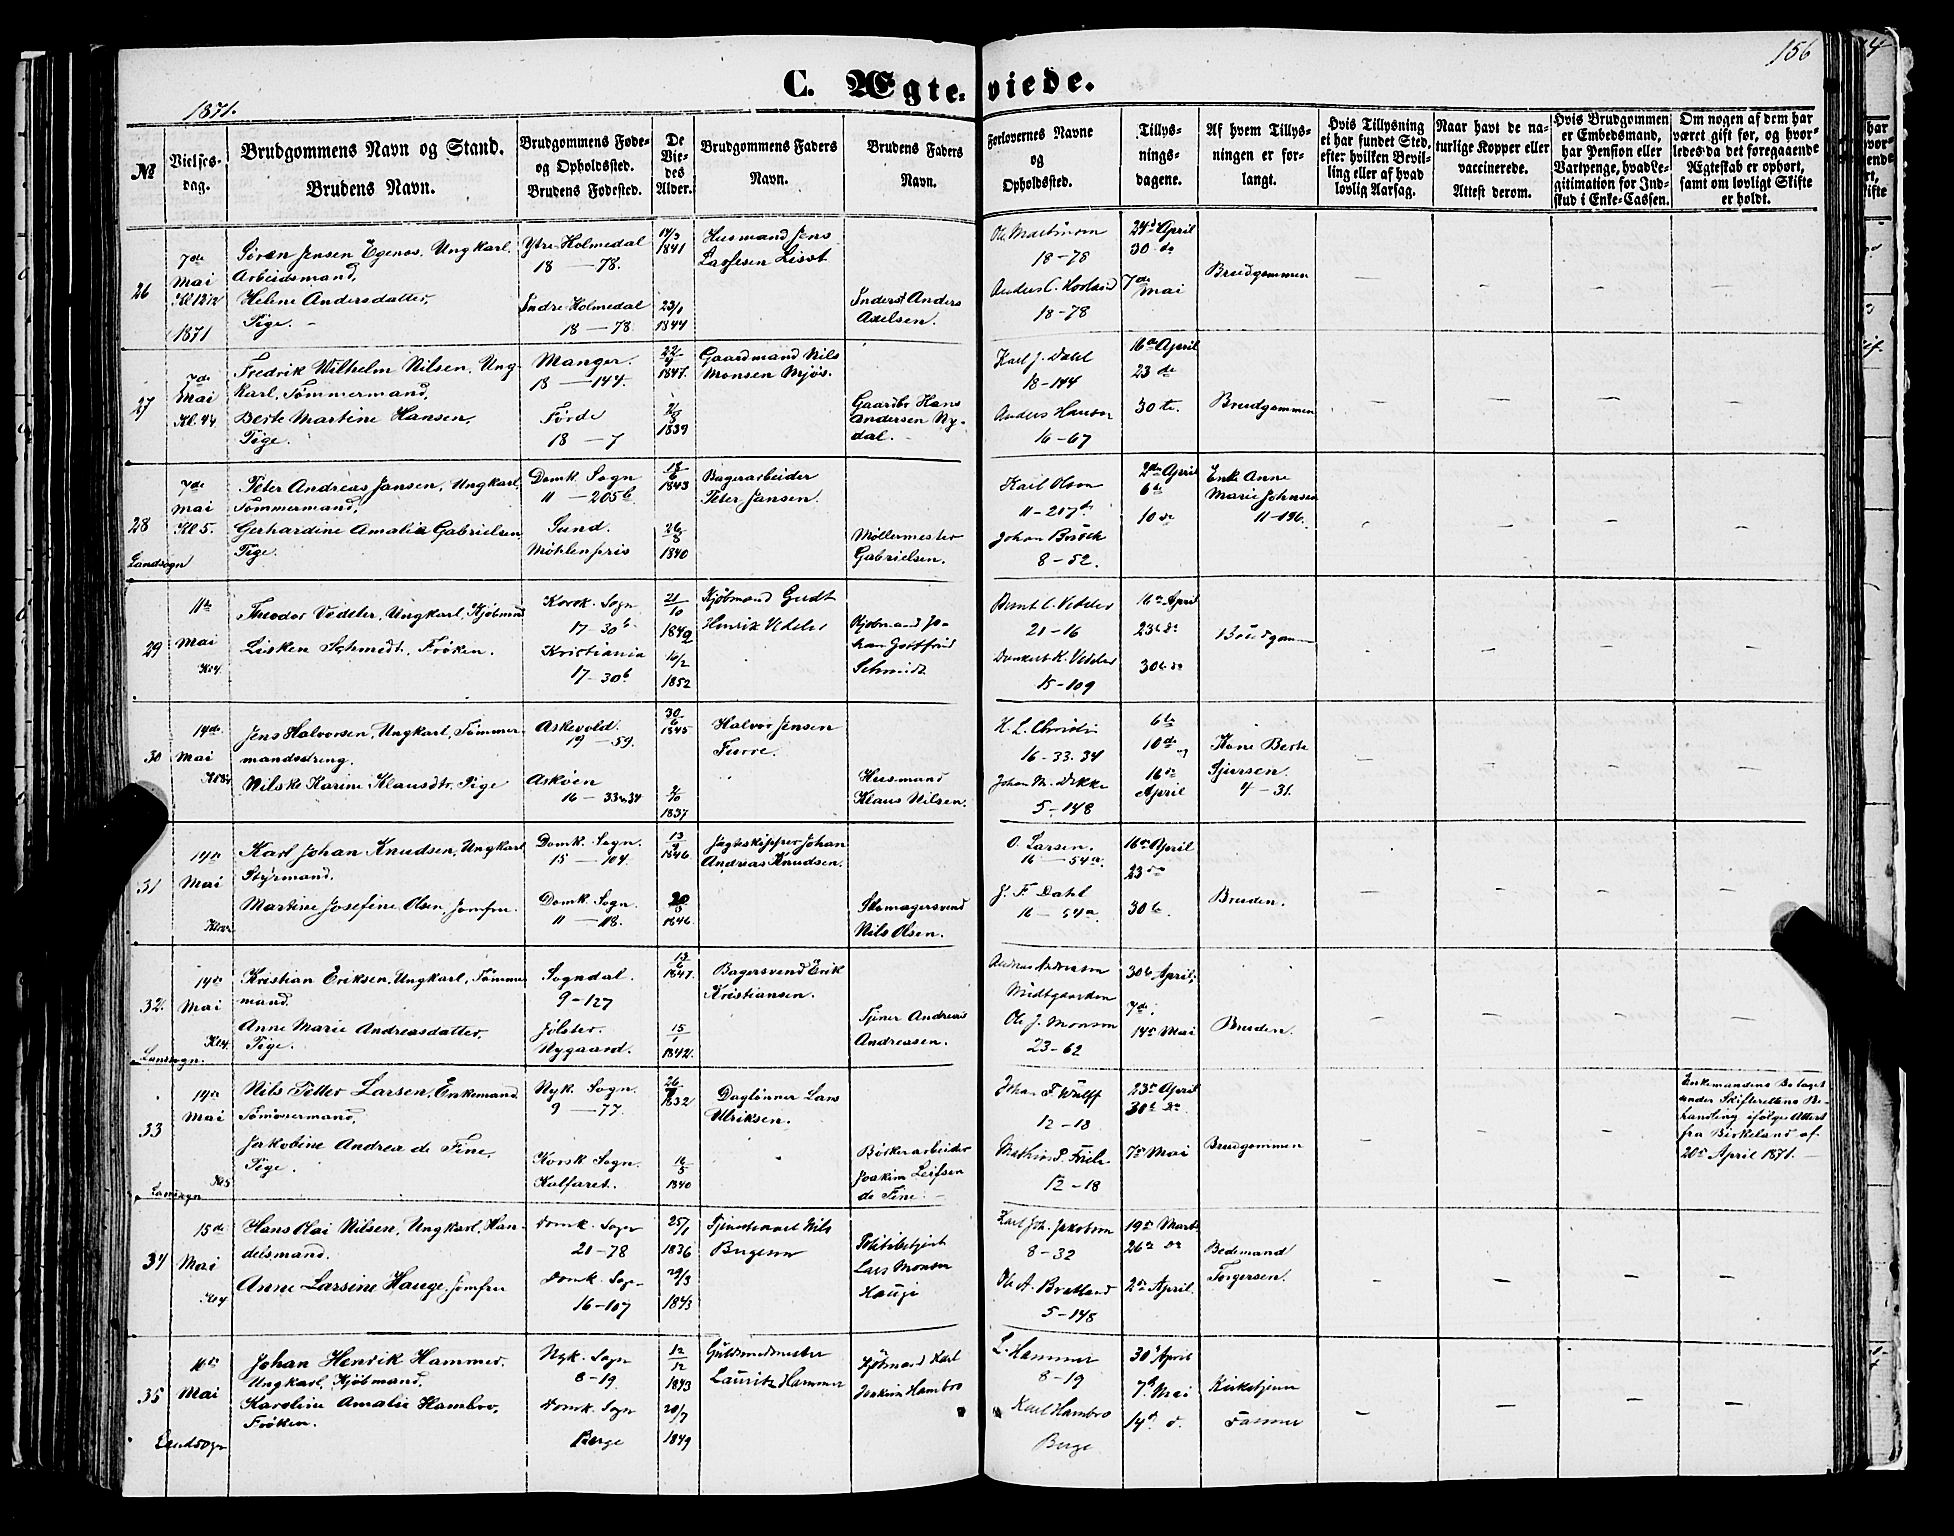 156
C. Ægteviede.
1871.
№
Vielses-
dag.
Brudgommens Navn og Stand.
Brudens Navn.
Brudgommens Føde-
og Opholdssted.
Brudens Fødested.
De
Vie-
des
Alder.
Brudgommens Faders
Navn.
Brudens Faders
Navn.
Forlovernes Navne
og
Opholdssted.
Tillys-
nings-
dagene.
Af hvem Tillys-
ningen er for-
langt.
Hvis Tillysning
ei har fundet Sted,
efter hvilken Bevil-
ling eller af hvad
lovlig Aarsag.
Naar havt de na-
turlige Kopper eller
vaccinerede.
Attest derom.
Hvis Brudgommen
er Embedsmand,
har Pension eller
Vartpenge, hvad Le-
gitimation for Ind-
skud i Enke-Cassen.
Om nogen af dem har
været gift før, og hvor-
ledes da det foregaaende
Ægteskab er ophørt,
samt om lovligt Skifte
er holdt.
26
7de
Mai
1871
Søren Jensen Egenæs, Ungkarl,
Arbeidsmand,
Helene Andersdatter,
Pige. -
Ytre Holmedal
18 - 78.
Indre Holmedal
18 - 78
14/3
1841
23/1
1844
Husmand Jens
Lassesen
Inderst Anders
Axelsen.
Ole Martinsen
18-78
Anders C.
18-78
24de April
30 de
7de
Mai
Brudgommen
27
7de
Mai
Kl. 4½
Fredrik Wilhelm Nilsen, Ung-
karl, Tømmermand,
Berte Martine Hansen,
Pige.
Manger.
18 - 144.
Førde
18 - 7
22/4
1847.
2/8
1839
Gaardmand Nils
Monsen Mjøs.
Gaardbr Hans
Andersen Ny-
dal.
Karl J. Dahl
18-144
Anders Hansen
16-67
16de April
23 de
30 te.
Brudgommen
28
Landsogn
7de
Mai
Kl 5.
Peter Andreas Jansen, Ungkarl,
Tømmermand,
Gerhardine Amalia Gabrielsen
Pige.
Domk. Sogn
11 - 205b
Sund.
Møhlenpris
18/6
1843
26/8
1840
Bagerarbeider
Peter Jansen.
Møllermester
Gabrielsen.
Karl Olsen
11-207d
Johan
8-52.
2den April
6te
10de
Enke Anne
Marie Johnsen
11-196.
29
11te
Mai
Kl 4.
Theodor Vedeler, Ungkarl, Kjøbmnd
Lisken Schmidt, Frøken.
Korsk. Sogn
17-30b
Kristiania
17-30b
21/10
1842
16/2
1852
Kjøbmand Gerdt
Henrik Vedeler
Kjøbmand Jo-
han Gottfried
Schmidt
Bernt C. Vedeler
21-16
Danckert K. Vedeler
15-109
16de April
23de do
30te do
Brudgommen
30
14de
Mai
Jens Halvorsen, Ungkarl, Tømmer-
mandsdreng.
Nilske Karine Klausdtr, Pige
Askevold.
19 - 59.
Askøen
16 - 33&34
30/6
1845
2/10
1837
Halvor Jensen
Furre.
Husmand
Klaus Nilsen.
H. L. Christi
16-33.34
Johan M. Dekke
5-148
6te
10de og
16de
April
Kone Berte
Sjursen.
4-31.
31
14de
Mai
Karl Johan Knudsen, Ungkarl
Styrmand,
Martine Josefine Olsen, Jomfru.
Domk. Sogn.
15 - 104.
Domk. Sogn.
11 - 118.
13/2
1846
20/8
1846.
Jagtskipper Johan
Andreas Knudsen.
Skomagersvend
Nils Olsen.
O. Larsen.
16 - 54a.
J. F. Dahl
16 - 54a.
16de April
23de
30te.
Bruden.
32.
Landsogn.
14de
Mai
Kl 4.
Kristian Eriksen, Ungkarl, Tømmer
mand.
Anne Marie Andreasdatter,
Pige.
Sogndal.
9-127
Jølster.
Nygaard.
18/6
1847.
15/1
1842.
Bagersvend Erik
Kristiansen.
Tjener Andreas
Andreasen.
Andreas Andersen
Midtgaarden
Ole J. Monsen
23-62
30te April;
7de.
14de Mai
Bruden.
33
Landsogn
14de
Mai
Kl 5
Nils Petter Larsen, Enkemand
Tømmermand,
Jakobine Andrea de Fine,
Pige.
Nyk. Sogn.
9 - 77.
Korsk Sogn.
Kalfaret.
26/9
1832
16/5
1840
Daglønner Lars
Ulriksen.
Bødkerarbeider
Joakim Leifsen
de Fine. -
Johan F Wulff
12-18
Mathias P. Friele
12-18
23de April
30te do.
7de Mai
Brudgommen
Enkemandens Bo taget
under Skifterettens Be-
handling ifølge Attest
fra Birkeland af
20de April 1871. -
34
15de
Mai
Kl 4
Hans Mai Nilsen, Ungkarl, Han-
delsmand.
Anne Larsine Hauge, Jomfru
Domk. Sogn
21-78
Domk. Sogn
16-107
25/1
1836
29/3
1843
Tjenestekarl Nils
Politibetjent
Lars Monsen
Hauge
Karl Joh. Jakobsen
8-32
Ole A. Bratland
5-148
19de Marts
26de do
2de April.
Bedemand
Torgersen.
35
Landsogn
16de
Mai
Johan Henrik Hammer,
Ungkarl, Kjøbmand,
Karoline Amalie Hambro,
Frøken.
Nyk. Sogn
8-19
Domk. Sogn
Berge
12/12
1843
20/7
1849
Guldsmedmester
Lauritz Hammer
Kjøbmand Karl
Joakim Hambro
L. Hammer
8-19
Karl Hambro
Berge
30te April
7de Mai
14de d.
Kirketjener
Fasmer